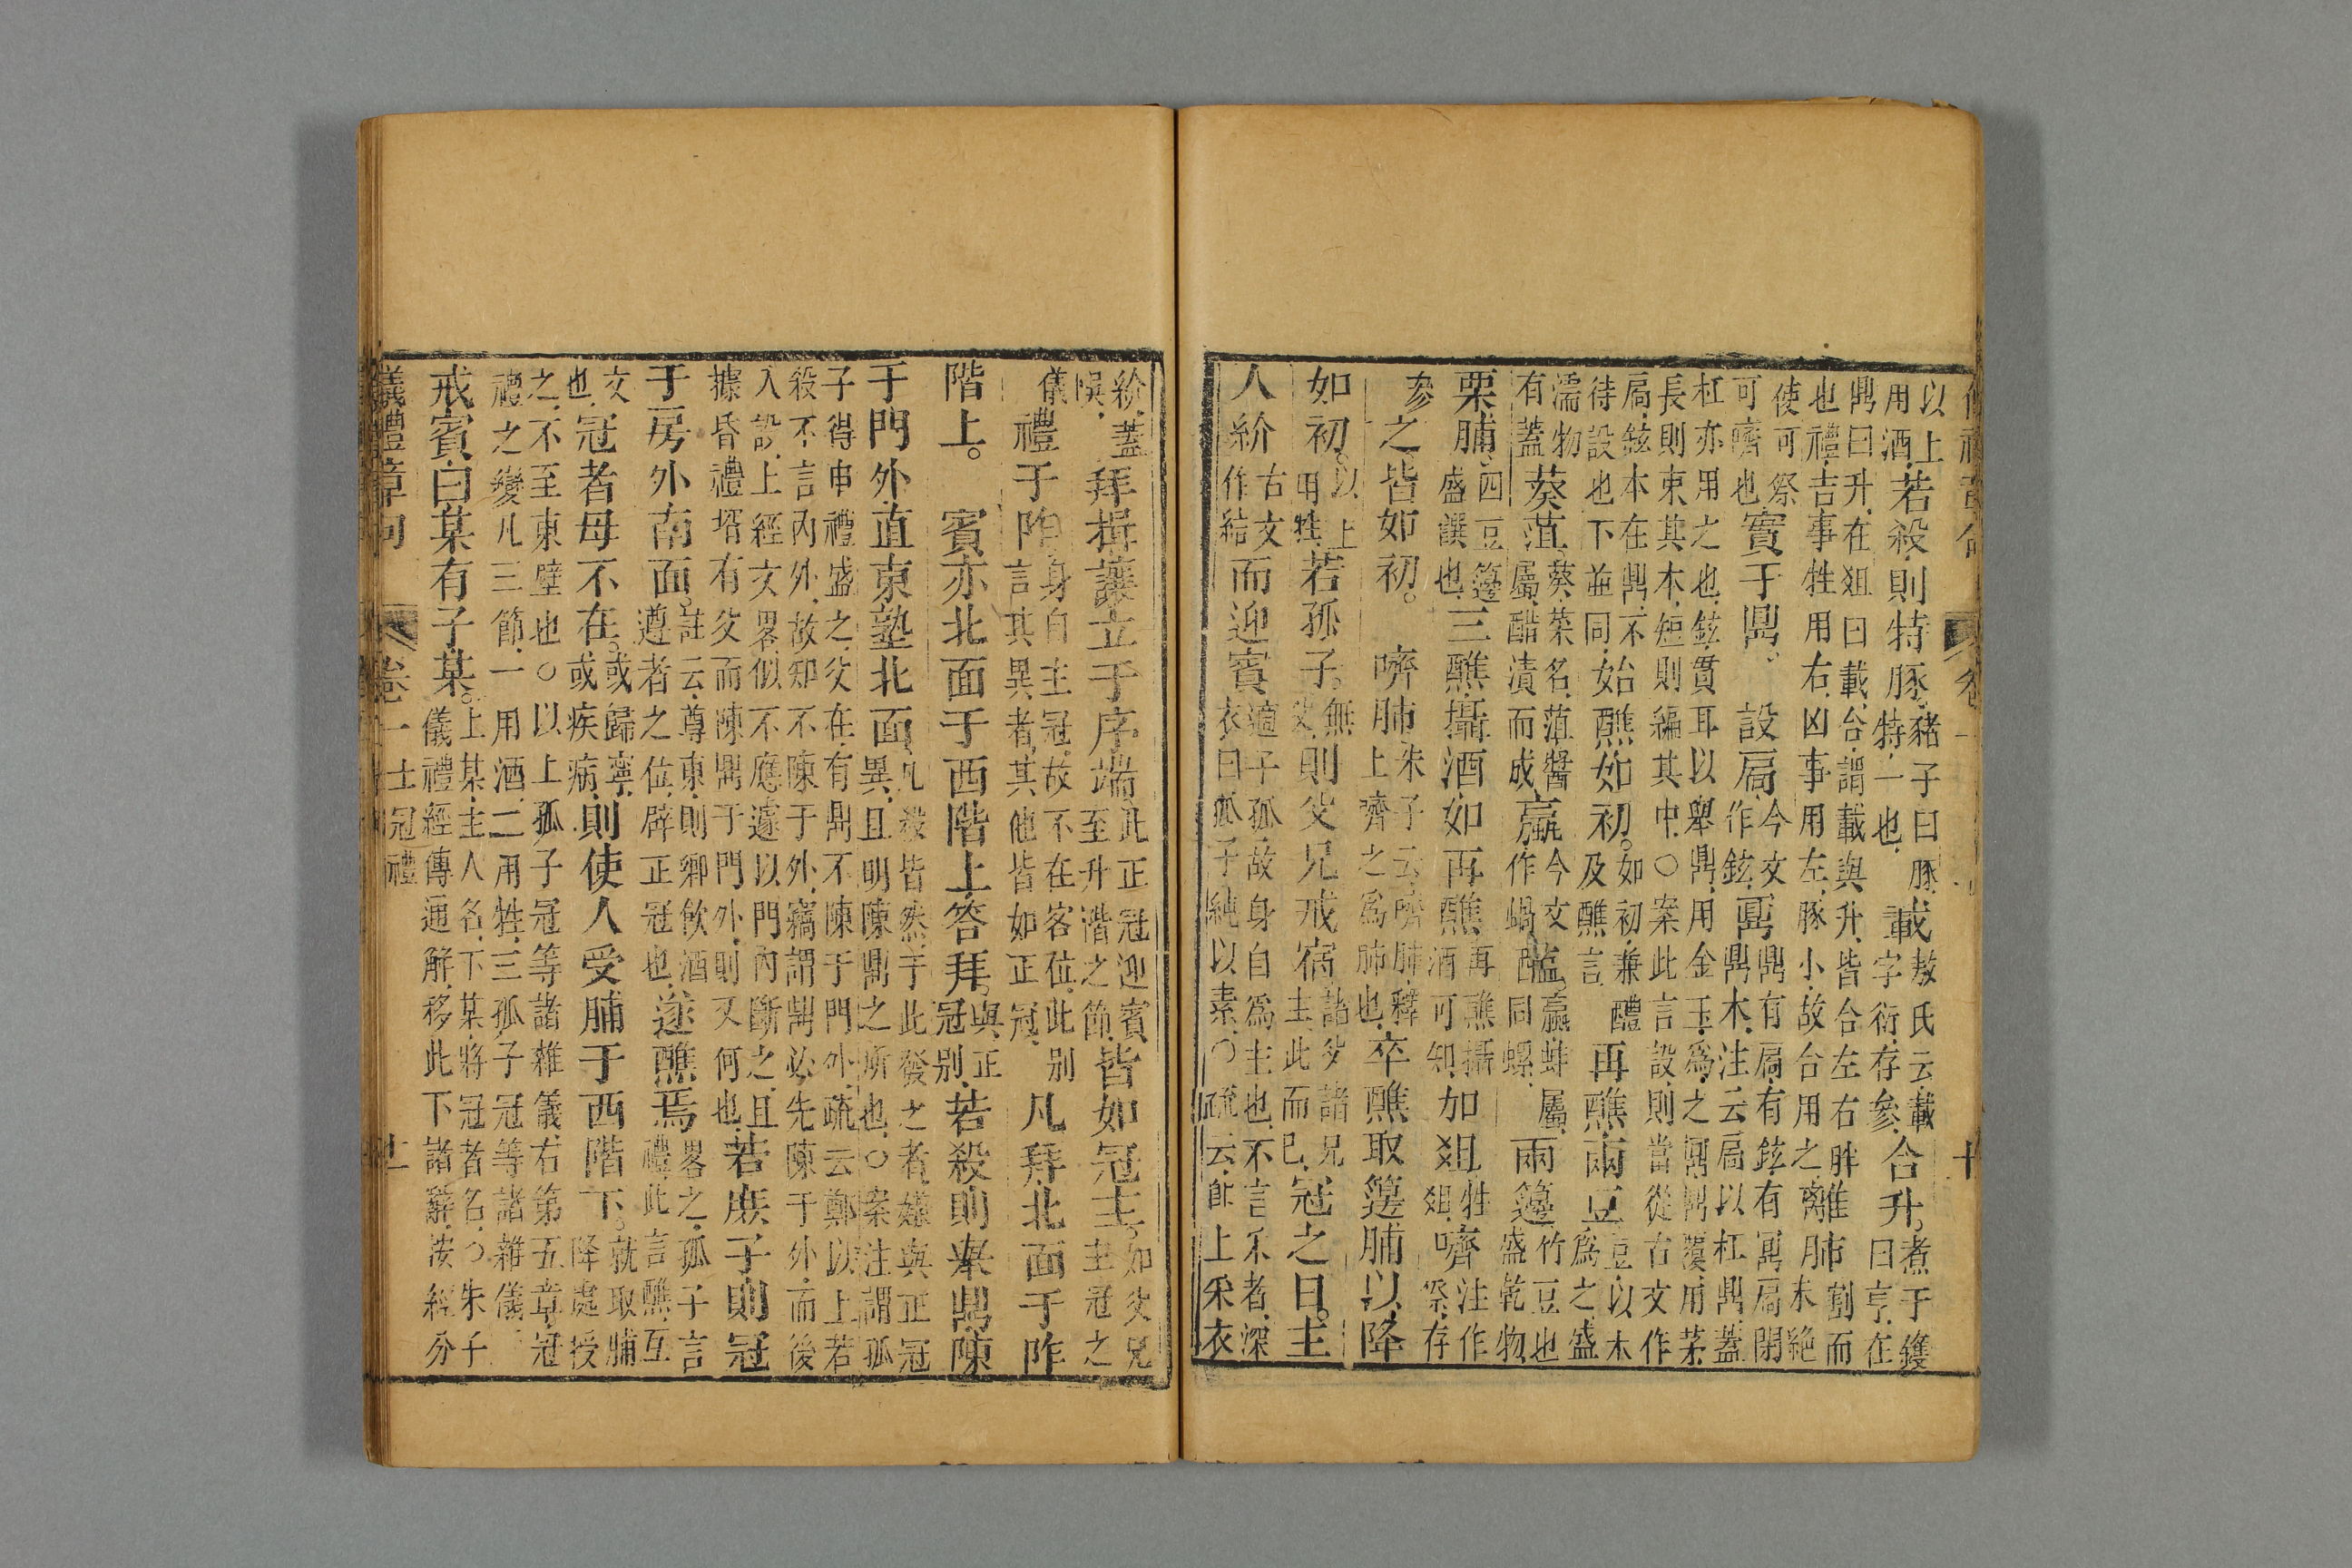 儀禮章句 卷一 十
以上用酒若殺則特豚豬子曰豚特一也載敖氏云載字衍存參合升煮于鑊曰亨在
鼎曰升在俎曰載合謂載與升皆合左右胖也禮吉事牲用右凶事用左豚小故合用之離肺割而未絕
使可祭可嚌也實于鼎設扃今文作鉉鼏鼎有扃有鉉有鼏扃閉鼎木注云扃以杠鼎蓋
杠亦用之也鉉貫耳以舉鼎用金玉爲之鼏鼎覆用茅長則束其本短則編其中○案此言設則當從古文作
扃鉉本在鼎不待設也下並同始醮如初如初兼醴及醮言再醮兩豆豆以木爲之盛
濡物有蓋葵菹葵菜名菹醬屬醋漬而成蠃今文作蝸醢蠃蚌屬同螺兩籩竹豆也盛乾物
栗脯四豆籩盛饌也三醮攝酒如再醮再醮攝酒可知加俎牲俎嚌注作祭存
參之皆如初嚌肺朱子云嚌肺釋上嚌之爲肺也卒醮取籩脯以降
如初以上用牲若孤子無父則父兄戒宿諸父諸兄主此而已冠之日主
人紒古文作結而迎賓適子孤故身自爲主也不言采者深衣曰孤子純以素○疏云卽上采衣
紒蓋悞拜揖讓立于序端此正冠迎賓至升階之節皆如冠主如父兄主冠之
儀禮于阼身自主冠故不在客位此别言其異者其他皆如正冠凡拜北面于阼
階上賓亦北面于西階上答拜與正冠别若殺則舉鼎陳
于門外直東塾北面凡殺皆然于此發之者嫌與正冠異且明陳鼎之所也○案注謂孤
子得申禮盛之父在有鼎不陳于門外疏云鄭以上若殺不言內外故知不陳于外竊謂鼎必先陳于外而後
入設上經文畧似不應遽以門內斷之且據昏禮壻有父而陳鼎于門外則又何也若庶子則冠
于房外南面註云尊東則卿飲酒遵者之位辟正冠也遂醮焉畧之孤子言禮此言醮互
文也冠者母不在或歸寧或疾病則使人受脯于西階下就取脯降處授
之不至東壁也○以上孤子冠等諸雜儀右第五章冠禮之變凡三節一用酒二用牲三孤子冠等諸雜儀
戒賓曰某有子某上某主人名下某將冠者名○朱子儀禮經傳通解移此下諸辭按經分
儀禮章句 卷一 士冠禮 十一